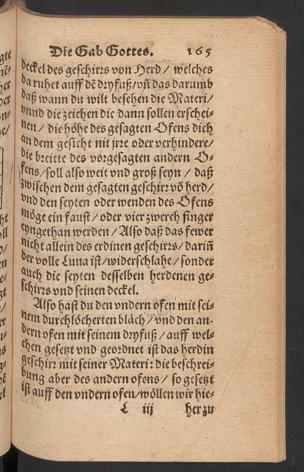 Die Gab Gottes. 165
deckel des geschirrs von Herd / welches
da ruhet auff dē dryfuß / vn̄ das darumb
daß wann du wilt besehen die Materi /
vnnd die zeichen die dann sollen erschei-
nen / die höhe des gesagten Ofens dich
an dem gesicht nit jrre oder verhindere /
die breitte des vorgesagten andern O-
fens / soll also weit vnd groß seyn / daß
zwischen dem gesagten geschirr võ herd /
vnd den seyten oder wenden des Ofens
möge ein faust / oder vier zwerch finger
eyngethan werden / Also daß das fewer
nicht allein des erdinen geschirrs / darin̄
der volle Luna ist / widerschlahe / sonder
auch die seyten desselben herdenen ge-
schirrs vnd seinen deckel.
Also hast du den vndern ofen mit sei-
nem durchlöcherten bläch / vnd den an-
dern ofen mit seinem dryfuß / auff wel-
chen gesetzt vnd geordnet ist das herdin
geschirr mit seiner Materi: die beschrei-
bung aber des andern ofens / so gesetzt
ist auff den vndern ofen / wöllen wir hie-
L iij her zu